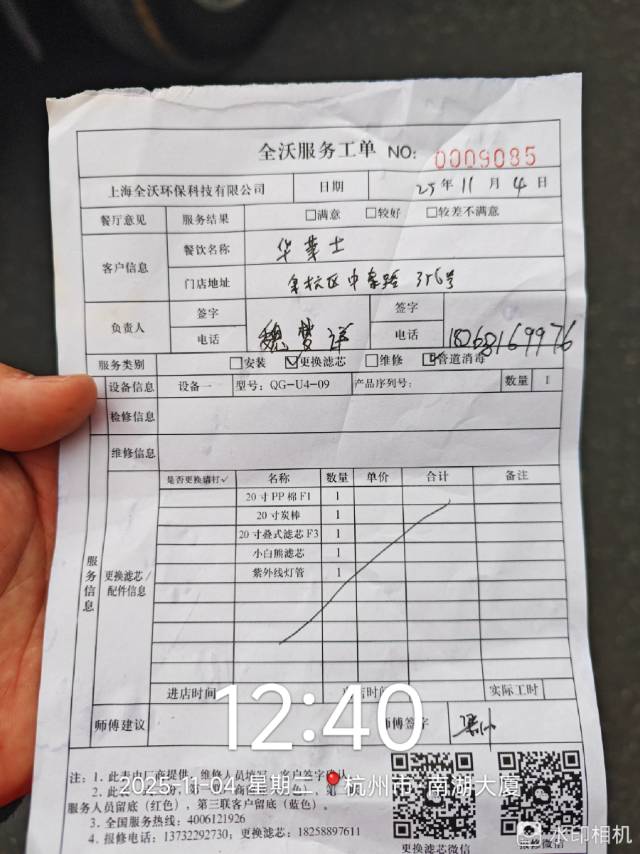 全沃服务工单 NO: 0009085
上海全沃环保科技有限公司 日期 25年 11月 4日
餐厅意见 服务结果 □满意 □较好 □较差不满意
客户信息 餐饮名称 华莱士
门店地址 余杭区中泰路 376号
负责人 签字 签字
电话 魏梦洋 电话 18268169976
服务类别 □安装 ☑更换滤芯 □维修 ☑管道消毒
设备信息 设备一 型号: QG-U4-09 产品序列号: 数量 1
检修信息
维修信息
服务信息 更换滤芯/配件信息
是否更换请打✓ 名称 数量 单价 合计 备注
20寸PP棉F1 1
20寸炭棒 1
20寸叠式滤芯F3 1
小白熊滤芯 1
紫外线灯管 1
进店时间 时间 实际工时
12:40
师傅建议 师傅签字
注: 1. 此表由厂商提供,维修人员填写,客户签字确认。
2025-11-04 星期二 杭州市·南湖大厦
服务人员留底(红色),第三联客户留底(蓝色)。
3. 全国服务热线: 4006121926
4. 报修电话: 13732292730; 更换滤芯: 18258897611
更换滤芯微信 报修微信
水印相机